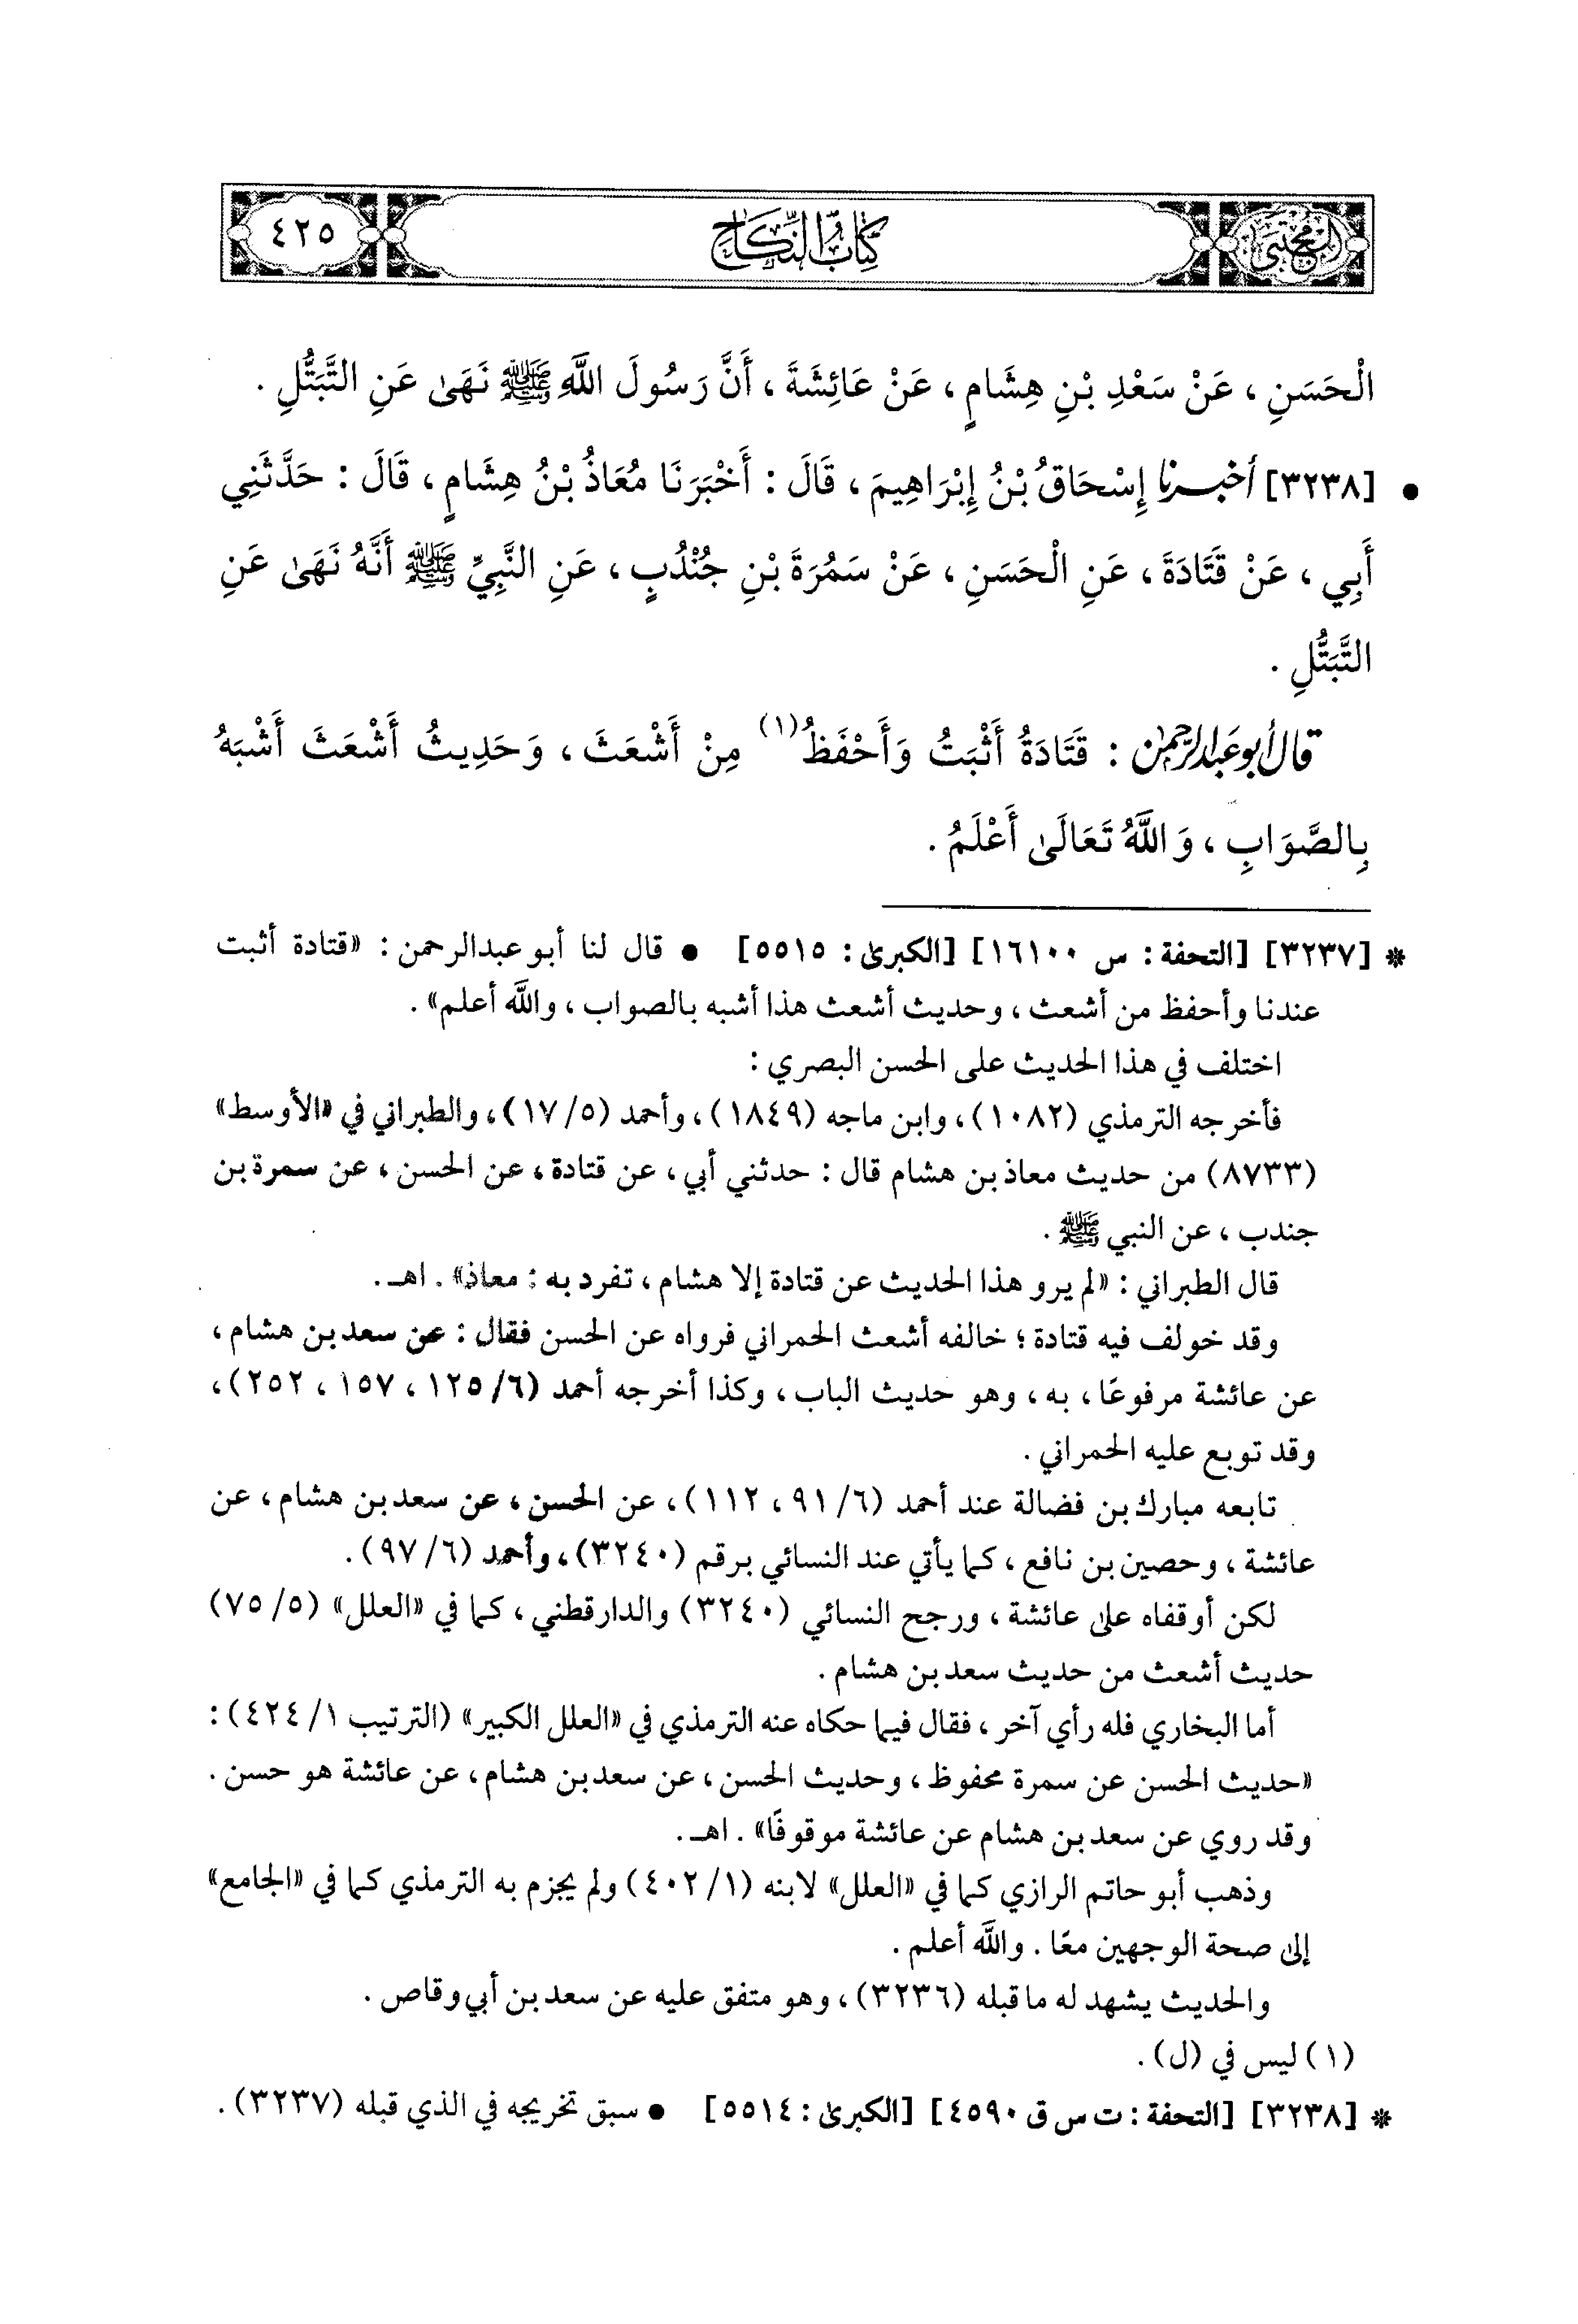 المجتبى
كتاب النكاح
٤٢٥
الْحَسَنِ ، عَنْ سَعْدِ بْنِ هِشَامٍ ، عَنْ عَائِشَةَ ، أَنَّ رَسُولَ اللَّهِ ﷺ نَهَىٰ عَنِ التَّبَتُّلِ .
• [٣٢٣٨] أخبرنا إِسْحَاقُ بْنُ إِبْرَاهِيمَ ، قَالَ : أَخْبَرَنَا مُعَاذُ بْنُ هِشَامٍ ، قَالَ : حَدَّثَنِي
أَبِي ، عَنْ قَتَادَةَ ، عَنِ الْحَسَنِ ، عَنْ سَمُرَةَ بْنِ جُنْدُبٍ ، عَنِ النَّبِيِّ ﷺ أَنَّهُ نَهَىٰ عَنِ
التَّبَتُّلِ .
قال أبو عبد الرحمن : قَتَادَةُ أَثْبَتُ وَأَحْفَظُ (١) مِنْ أَشْعَثَ ، وَحَدِيثُ أَشْعَثَ أَشْبَهُ
بِالصَّوَابِ ، وَاللَّهُ تَعَالَىٰ أَعْلَمُ .
* [٣٢٣٧] [التحفة : س ١٦١٠٠] [الكبرىٰ : ٥٥١٥] • قال لنا أبو عبدالرحمن : «قتادة أثبت
عندنا وأحفظ من أشعث ، وحديث أشعث هذا أشبه بالصواب ، واللَّه أعلم» .
اختلف في هذا الحديث على الحسن البصري :
فأخرجه الترمذي (١٠٨٢) ، وابن ماجه (١٨٤٩) ، وأحمد (١٧/٥) ، والطبراني في «الأوسط»
(٨٧٣٣) من حديث معاذ بن هشام قال : حدثني أبي ، عن قتادة ، عن الحسن ، عن سمرة بن
جندب ، عن النبي ﷺ .
قال الطبراني : «لم يرو هذا الحديث عن قتادة إلا هشام ، تفرد به : معاذ» . اهـ .
وقد خولف فيه قتادة ؛ خالفه أشعث الحمراني فرواه عن الحسن فقال : عن سعد بن هشام ،
عن عائشة مرفوعًا ، به ، وهو حديث الباب ، وكذا أخرجه أحمد (١٢٥/٦ ، ١٥٧ ، ٢٥٢) ،
وقد توبع عليه الحمراني .
تابعه مبارك بن فضالة عند أحمد (٩١/٦ ، ١١٢) ، عن الحسن ، عن سعد بن هشام ، عن
عائشة ، وحصين بن نافع ، كما يأتي عند النسائي برقم (٣٢٤٠) ، وأحمد (٩٧/٦) .
لكن أوقفاه علىٰ عائشة ، ورجح النسائي (٣٢٤٠) والدارقطني ، كما في «العلل» (٧٥/٥)
حديث أشعث من حديث سعد بن هشام .
أما البخاري فله رأي آخر ، فقال فيما حكاه عنه الترمذي في «العلل الكبير» (الترتيب ٤٢٤/١) :
«حديث الحسن عن سمرة محفوظ ، وحديث الحسن ، عن سعد بن هشام ، عن عائشة هو حسن .
وقد روي عن سعد بن هشام عن عائشة موقوفًا» . اهـ .
وذهب أبو حاتم الرازي كما في «العلل» لابنه (٤٠٢/١) ولم يجزم به الترمذي كما في «الجامع»
إلىٰ صحة الوجهين معًا . واللَّه أعلم .
والحديث يشهد له ما قبله (٣٢٣٦) ، وهو متفق عليه عن سعد بن أبي وقاص .
(١) ليس في (ل) .
* [٣٢٣٨] [التحفة : ت س ق ٤٥٩٠] [الكبرىٰ : ٥٥١٤] • سبق تخريجه في الذي قبله (٣٢٣٧) .